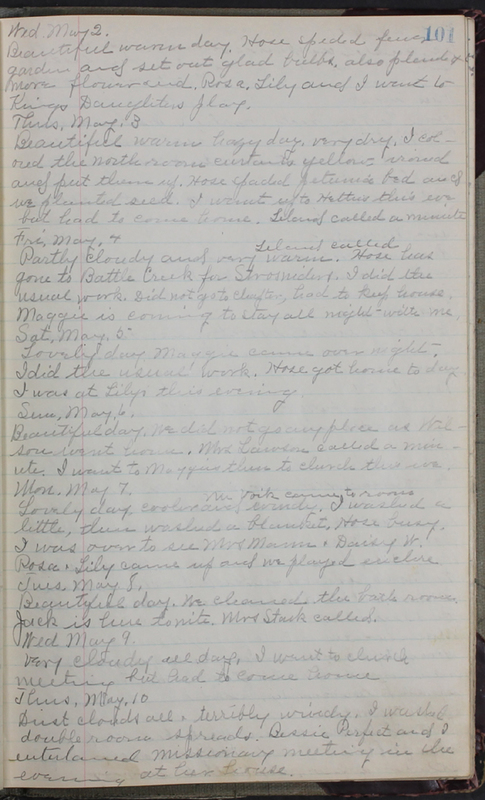 101
Wed. May 2.
Beautiful warm day. Hose spaded
garden and set out glad bulbs, also planted
more flower seed. Rosa, Lily and I went to
Kings Daughters play.
Thus, May, 3
Beautiful warm hazy day, very dry. I col-
ored the north room curtains yellow ironed
and put them up. Hose spaded petunia bed and
we planted seed. I went up to Hattie's this eve
but had to come home. Leland called a minute
Fri, May, 4
Leland called
Partly cloudy and very warm. Hose has
gone to Battle Creek for I did the
usual work. Did not go to Chapter, had to keep house.
Maggie is coming to stay all night with me.
Sat, May, 5
Lovely day Maggie came over night.
I did the usual work. Hose got home to day
I was at Lilys this evening
Sun, May, 6.
Beautiful day. We did not go any place as
went home. Mrs Lawson called a min-
ute. I went to Maggies then to church this eve.
Mon. May 7.
Mr York came to room
Lovely day cooler and windy. I washed a
little, then washed a blanket. Hose busy.
I was over to see Mrs Mann & Daisy W.
Rosa & Lily came up and we played euchre
Tues. May 8.
Beautyful day. We cleaned the bath room.
Jack is here tonite. Mrs Stark called.
Wed May 9.
Very cloudy all day. I went to church
meeting but had to come home
Thus, May, 10
Dust clouds all & terribly windy. I washed
double room spreads. Bessie Perfect and I
entertained missionary meeting in the
evening at our house.